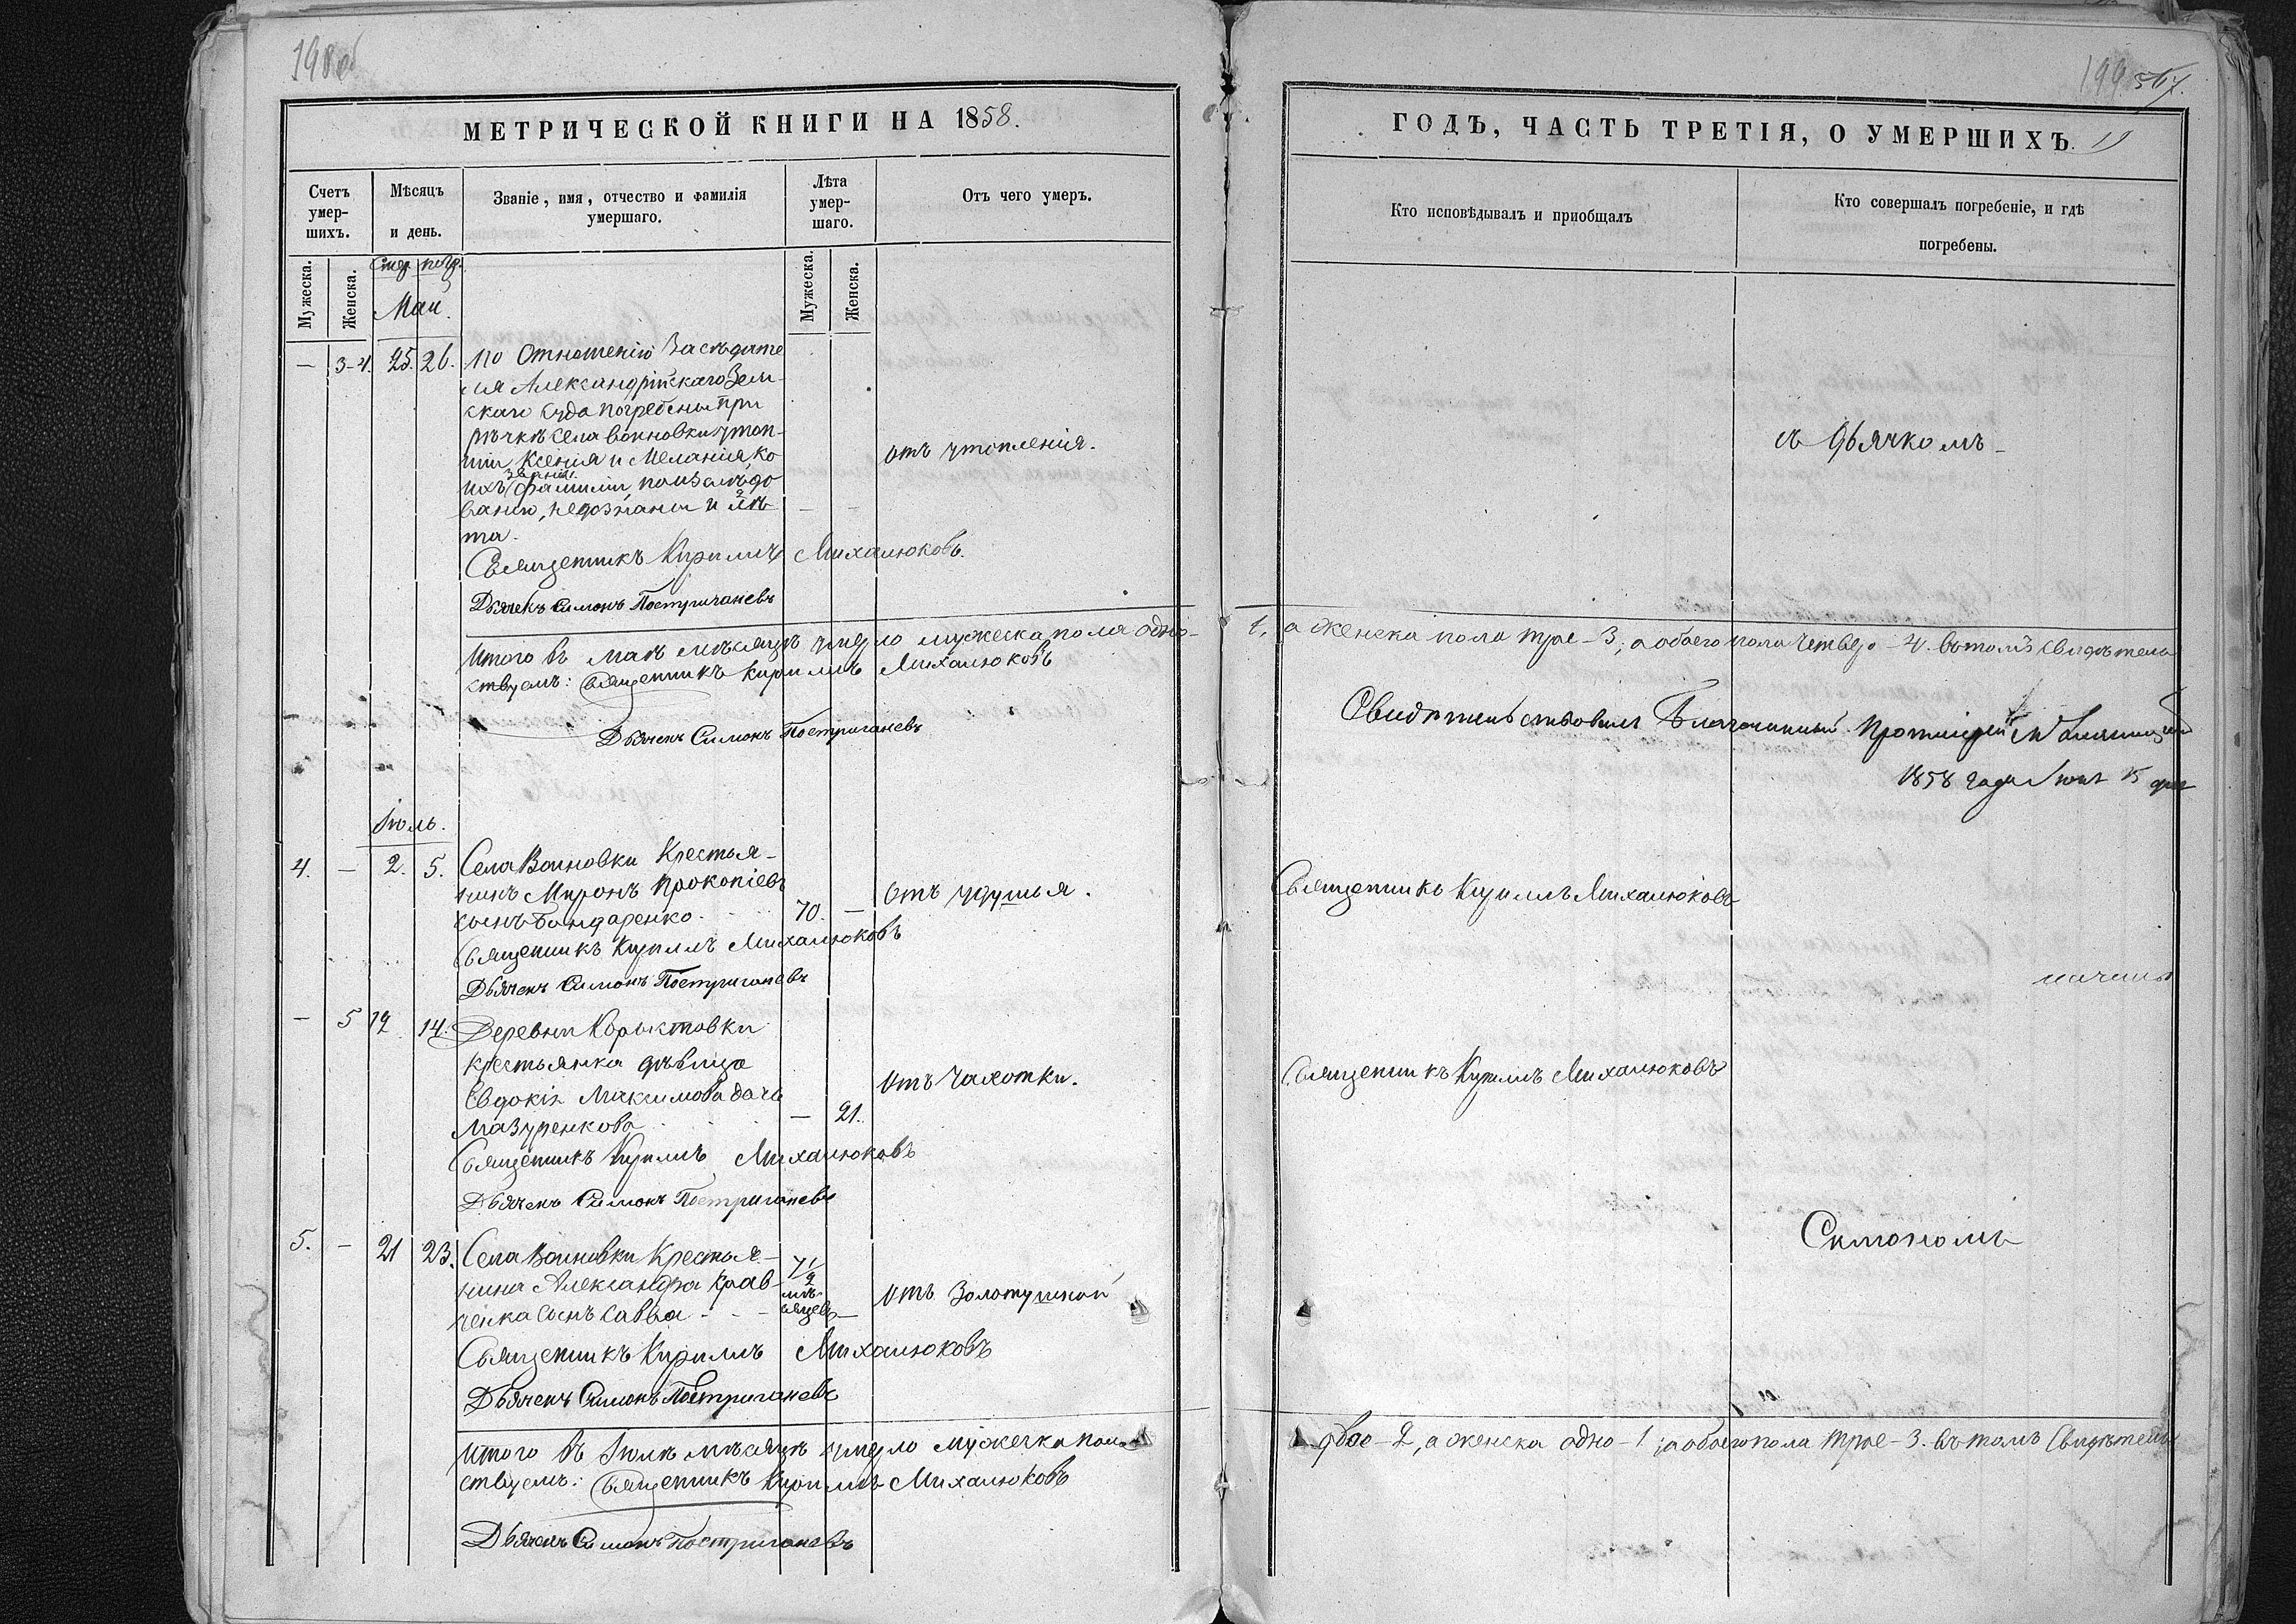 198 об
МЕТРИЧЕСКОЙ КНИГИ НА 1858.
Счетъ умер-
шихъ.
Мѣсяцъ
и день.
Званіе, имя, отчество и фамилія
умершаго.
Лѣта
умер-
шаго.
Отъ чего умеръ.
Мужеска.
Женска.
Смер. погр.
Мужеска.
Женска.
Маи.
— 3-4. 25. 26. По Отношенію Засѣдате
ля Александрійскаго Зем-
скаго суда погребены при
рѣчкѣ села Воиновки утоп-
шіи Ксенія и Меланія, ко
ихъ званія фамиліи, по изслѣдо
ванію, недознаны и лѣ — —
та.
отъ утопленія.
Священникъ Кириллъ Михалюковъ.
Дьячекъ Симонъ Постригачевъ
Итого въ маѣ мѣсяцѣ умерло мужеска пола одно-
ствуемъ: Священникъ Кириллъ Михалюковъ
Дьячекъ Симонъ Постригачевъ
Іюль.
4. — 2. 5. Села Воиновки Крестья-
нинъ Миронъ Прокопіевъ
сынъ Бондаренко. 70. — отъ удушья.
Священникъ Кириллъ Михалюковъ
Дьячекъ Симонъ Постригачевъ
— 5 12 14. Деревни Корыстовки
крестьянка дѣвица
Евдокія Максимова дочь
Мазуренкова — 21. отъ Чахотки.
Священникъ Кириллъ Михалюковъ
Дьячекъ Симонъ Постригачевъ
5. — 21 23. Села Воиновки Крестья-
нина Александра Крав-
ченка сынъ Савва - - 7 1/2 мѣ-
сяцев — отъ Золотушной
Священникъ Кириллъ Михалюковъ
Дьячекъ Симонъ Постригачевъ
Итого въ Іюлѣ мѣсяцѣ умерло мужеска пола
ствуемъ: Священникъ Кириллъ Михалюковъ
Дьячекъ Симонъ Постригачевъ
199
ГОДЪ, ЧАСТЬ ТРЕТІЯ, О УМЕРШИХЪ.
Кто исповѣдывалъ и приобщалъ
Кто совершалъ погребеніе, и гдѣ
погребены.
съ дьячкомъ
1, а женска пола трое - 3, а обоего пола четверо - 4. въ томъ свидѣтель
Свидѣтельствовалъ Благочинный Протоіерей
1858 года
Священникъ Кириллъ Михалюковъ
Священникъ Кириллъ Михалюковъ
Симономъ
двое - 2, а женска одно - 1, а обоего пола трое - 3. въ томъ свидѣтель